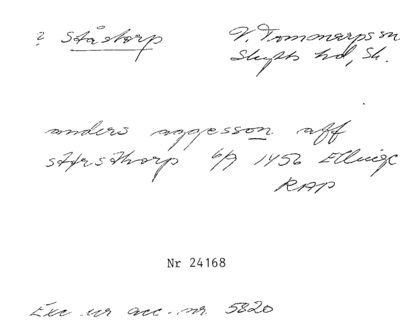 ? Ståstorp V. Tommarps sn
Skytts hd, Sk.
anders aggesson aff
6/9 1456 Ellinge
RAP
Nr 24168
Exc. ur acc. nr. 5820